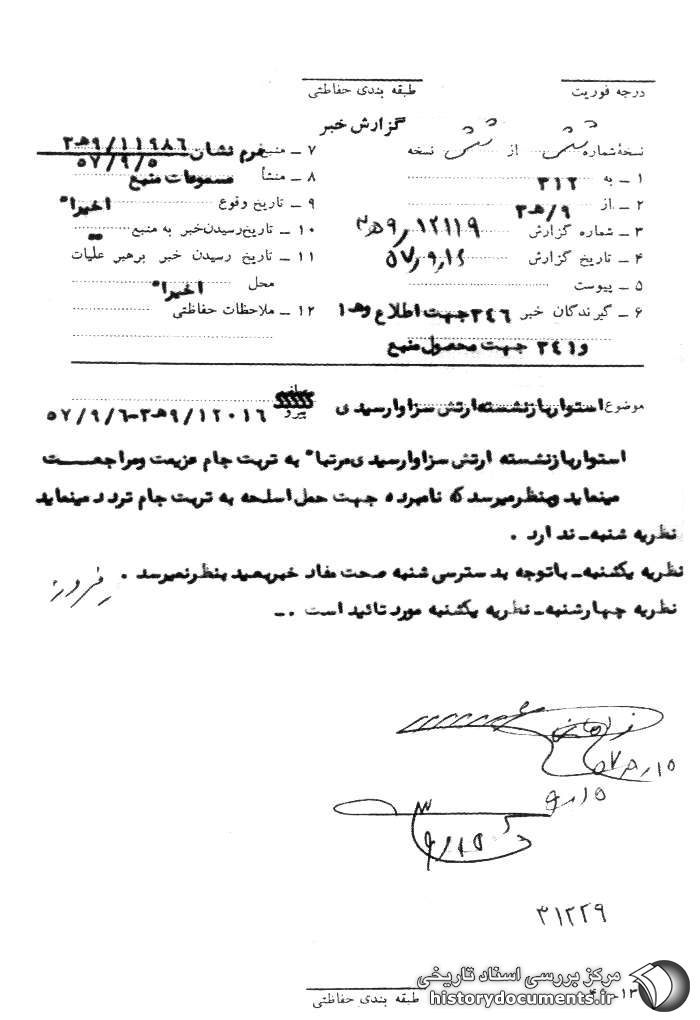 درجه فوریت
طبقه بندی حفاظتی
گزارش خبر
نسخهٔ شماره شش از شش نسخه
۱ ـ به ۳۱۲
۲ ـ از ۹/هـ۳
۳ ـ شماره گزارش ۱۲۱۱۹/۹هـ۳
۴ ـ تاریخ گزارش ۵۷/۹/۱۴
۵ ـ پیوست
۶ ـ گیرندگان خبر ۳۴۶ جهت اطلاع وهـ۱
و۳۴۱ جهت محصول منبع
۷ ـ منبع فرم نشان ۱۱۹۸۶/۹هـ۳
۵۷/۹/۵
۸ ـ منشأ مسموعات منبع
۹ ـ تاریخ وقوع اخیرا"
۱۰ ـ تاریخ رسیدن خبر به منبع "
۱۱ ـ تاریخ رسیدن خبر برهبر عملیات
محل اخیرا"
۱۲ ـ ملاحظات حفاظتی
موضوع استوار بازنشسته ارتش سزاوار سیدی
پیرو ۱۲۰۱۶/۹هـ۳-۵۷/۹/۶
استوار بازنشسته ارتش سزاوار سیدی مرتبا" به تربت جام عزیمت ومراجعت
مینماید وبنظر میرسد که نامبرده جهت حمل اسلحه به تربت جام تردد مینماید
نظریه شنبه ـ ندارد .
نظریه یکشنبه ـ باتوجه بدسترسی شنبه صحت مفاد خبر بعید بنظر نمیرسد .
نظریه چهارشنبه ـ نظریه یکشنبه مورد تائید است . ـ
۱۵/۹/۵۷
۱۵/۹
۱۵/۹
۳۱۲۲۹
طبقه بندی حفاظتی
مرکز بررسی اسناد تاریخی
historydocuments.ir